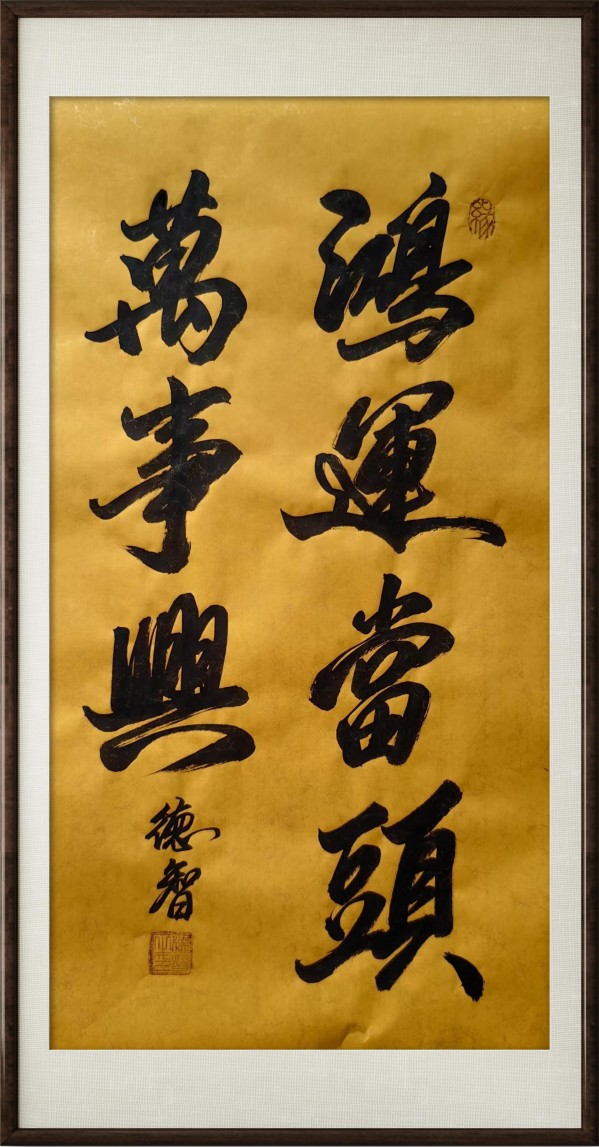 鴻運當頭
萬事興
德智